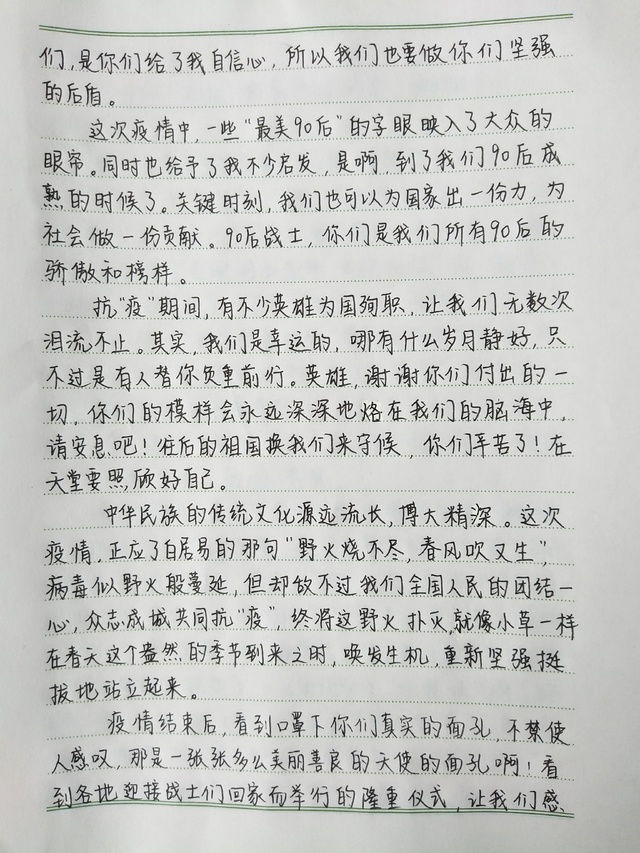 们,是你们给了我自信心,所以我们也要做你们坚强
的后盾。
这次疫情中,一些“最美90后”的字眼映入了大众的
眼帘。同时也给予了我不少启发,是啊,到了我们90后成
熟的时候了。关键时刻,我们也可以为国家出一份力,为
社会做一份贡献。90后战士,你们是我们所有90后的
骄傲和榜样。
抗“疫”期间,有不少英雄为国殉职,让我们无数次
泪流不止。其实,我们是幸运的,哪有什么岁月静好,只
不过是有人替你负重前行。英雄,谢谢你们付出的一
切,你们的模样会永远深深地烙在我们的脑海中,
请安息吧!往后的祖国换我们来守候,你们辛苦了!在
天堂要照顾好自己。
中华民族的传统文化源远流长,博大精深。这次
疫情,正应了白居易的那句“野火烧不尽,春风吹又生”,
病毒似野火般蔓延,但却敌不过我们全国人民的团结一
心,众志成城共同抗“疫”,终将这野火扑灭,就像小草一样
在春天这个盎然的季节到来之时,唤发生机,重新坚强挺
拔地站立起来。
疫情结束后,看到口罩下你们真实的面孔,不禁使
人感叹,那是一张张多么美丽善良的天使的面孔啊!看
到各地迎接战士们回家而举行的隆重仪式,让我们感